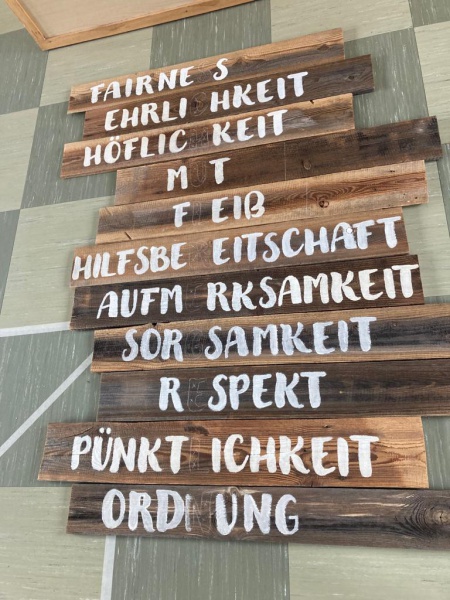 FAIRNE S
EHRLI HKEIT
HÖFLIC KEIT
M T
F EIß
HILFSBE EITSCHAFT
AUFM RKSAMKEIT
SOR SAMKEIT
R SPEKT
PÜNKT ICHKEIT
ORD UNG